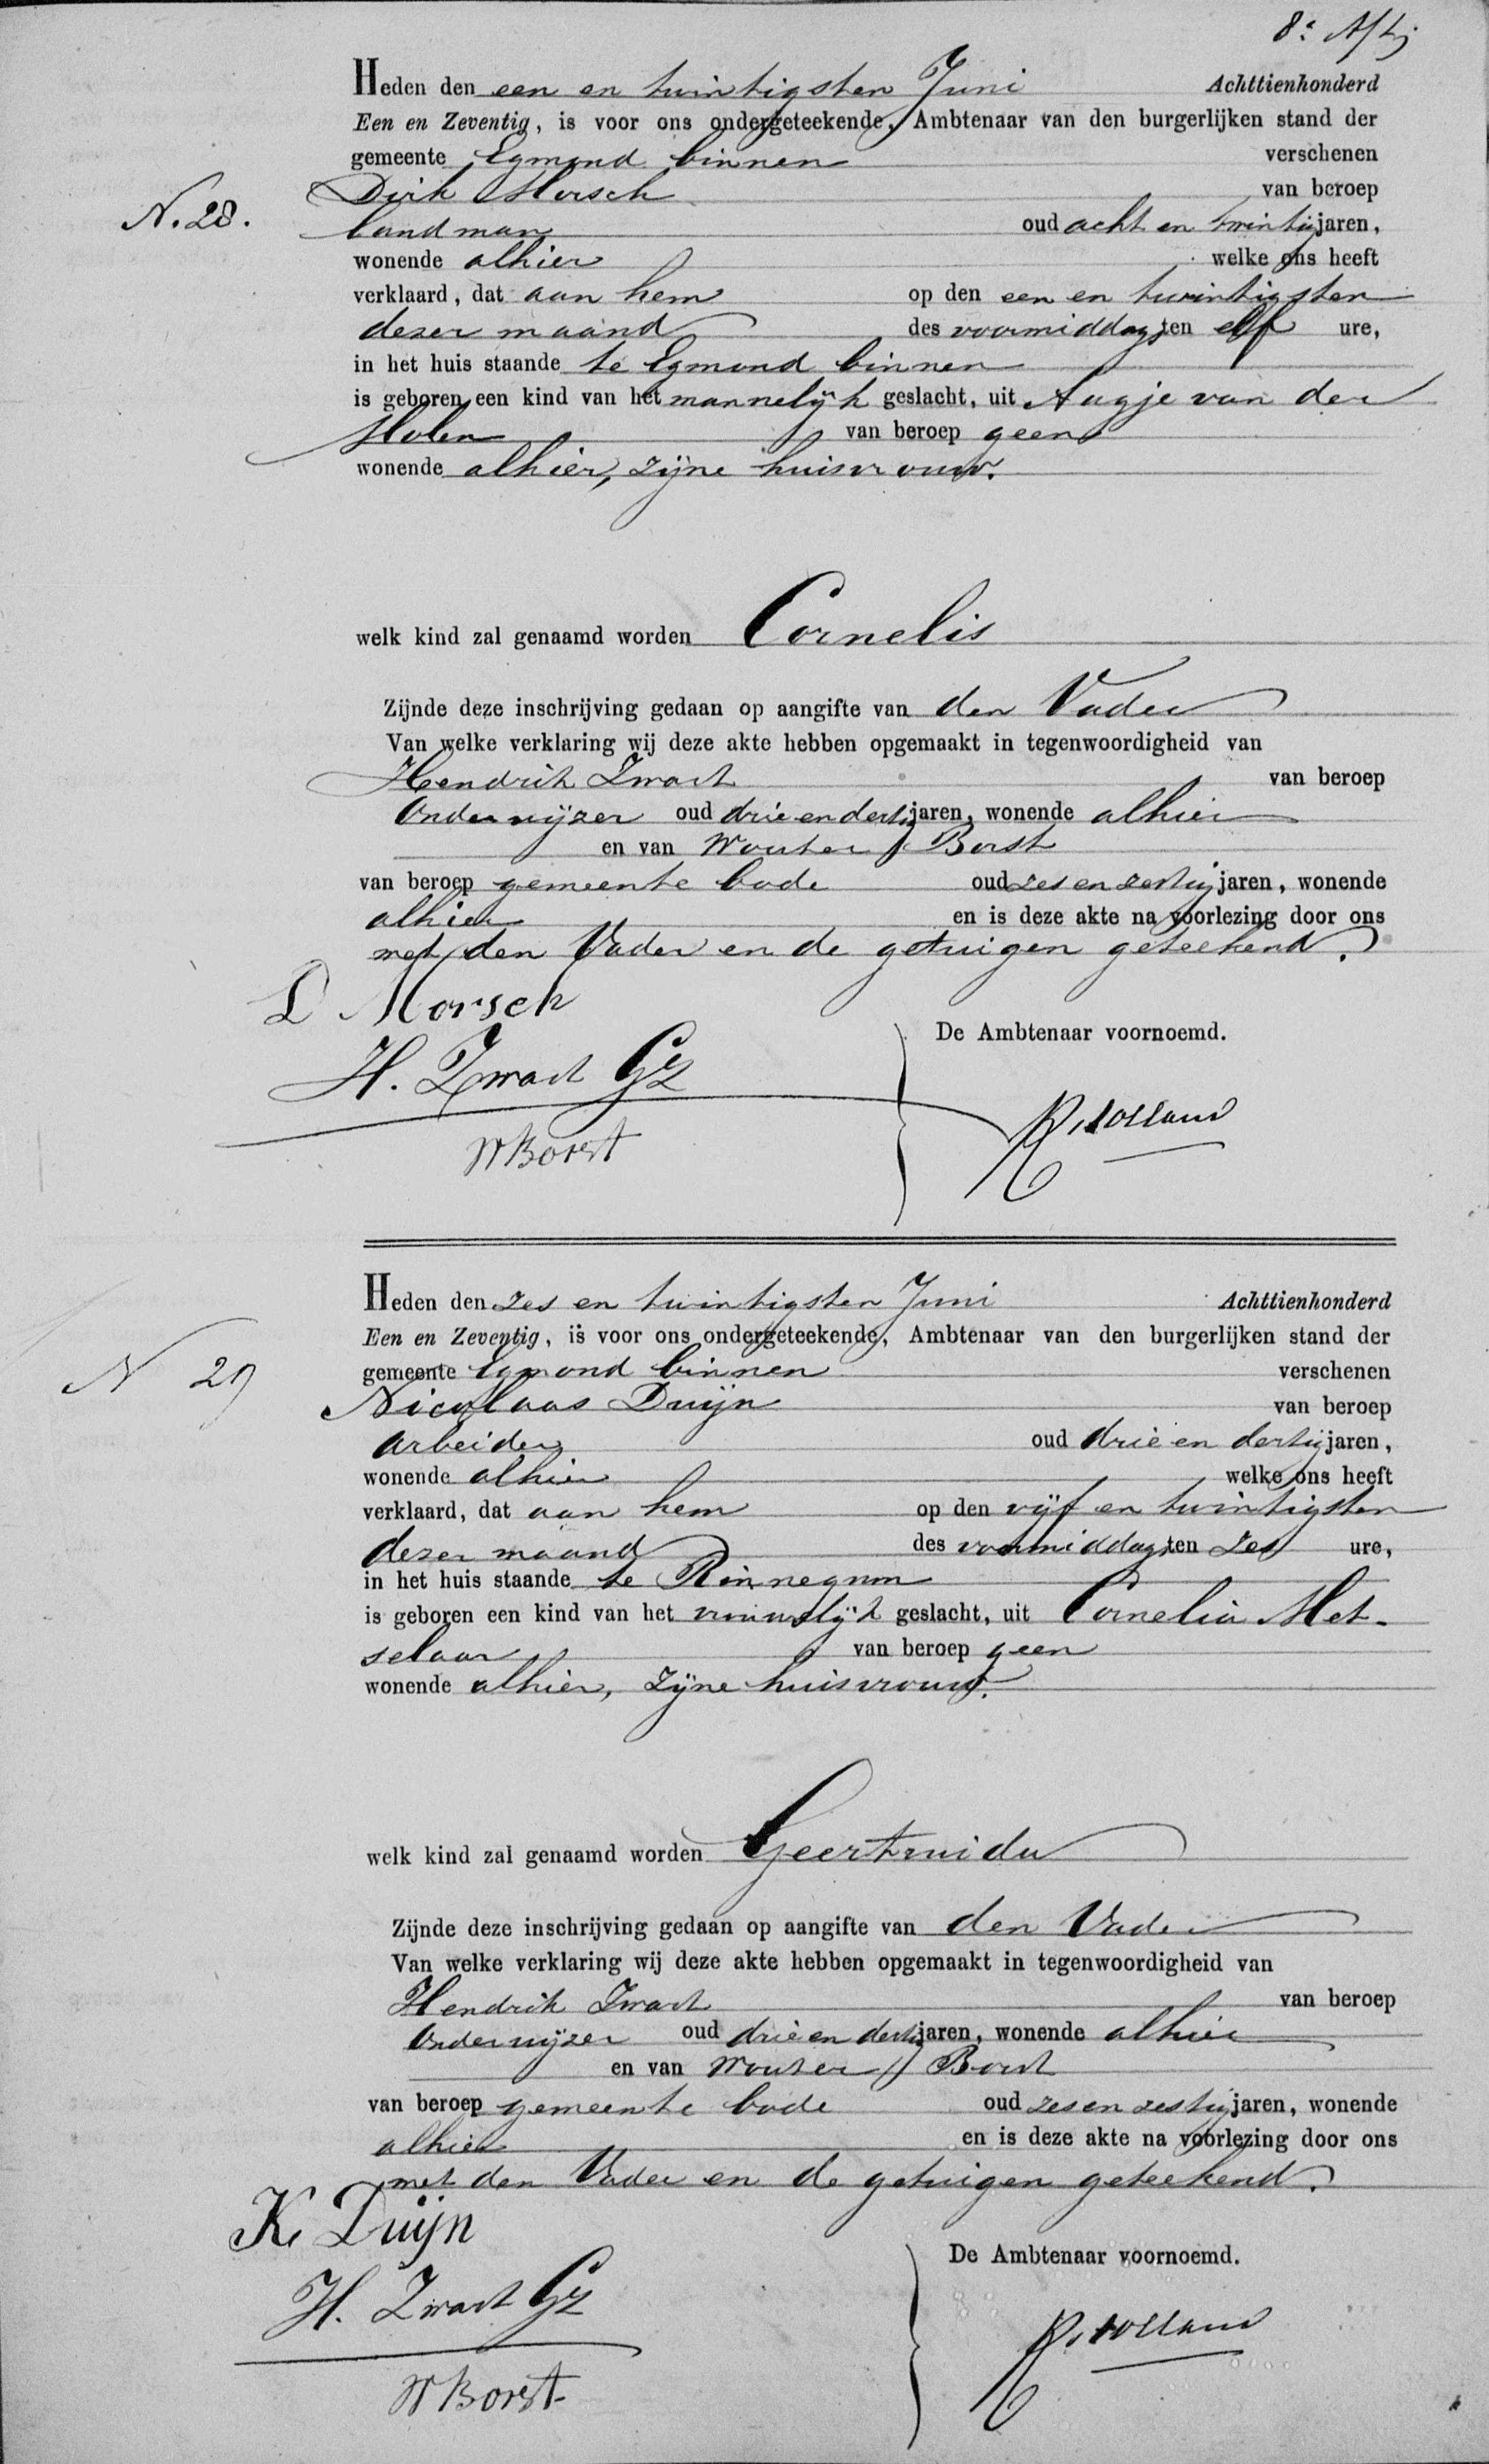 Heden den een en twintigsten Juni Achttienhonderd
Een en Zeventig, is voor ons ondergeteekende, Ambtenaar van den burgerlijken stand der
gemeente Egmond binnen verschenen
N. 28. Dirk Morsch van beroep
landman oud acht en twintig jaren,
wonende alhier welke ons heeft
verklaard, dat aan hem op den een en twintigsten
dezer maand des voormiddags ten elf ure,
in het huis staande te Egmond binnen
is geboren een kind van het mannelijk geslacht, uit Aagje van der
Molen van beroep geen
wonende alhier, zijne huisvrouw.
welk kind zal genaamd worden Cornelis
Zijnde deze inschrijving gedaan op aangifte van den Vader
Van welke verklaring wij deze akte hebben opgemaakt in tegenwoordigheid van
Hendrik Zwart van beroep
Onderwijzer oud drie en dertig jaren, wonende alhier
en van Wouter Borst
van beroep gemeente bode oud zes en zestig jaren, wonende
alhier en is deze akte na voorlezing door ons
met den Vader en de getuigen geteekend.
D Morsch
De Ambtenaar voornoemd.
H. Zwart Gz
W Borst
Heden den zes en twintigsten Juni Achttienhonderd
Een en Zeventig, is voor ons ondergeteekende, Ambtenaar van den burgerlijken stand der
gemeente Egmond binnen verschenen
N 29 Nicolaas Duijn van beroep
Arbeider oud drie en dertig jaren,
wonende alhier welke ons heeft
verklaard, dat aan hem op den vijf en twintigsten
dezer maand des voormiddags ten zes ure,
in het huis staande te Rinnegom
is geboren een kind van het vrouwelijk geslacht, uit Cornelia Met-
selaar van beroep geen
wonende alhier, zijne huisvrouw.
welk kind zal genaamd worden Geertruida
Zijnde deze inschrijving gedaan op aangifte van den Vader
Van welke verklaring wij deze akte hebben opgemaakt in tegenwoordigheid van
Hendrik Zwart van beroep
Onderwijzer oud drie en dertig jaren, wonende alhier
en van Wouter Borst
van beroep gemeente bode oud zes en zestig jaren, wonende
alhier en is deze akte na voorlezing door ons
met den Vader en de getuigen geteekend.
K. Duijn
De Ambtenaar voornoemd.
H. Zwart Gz
W Borst